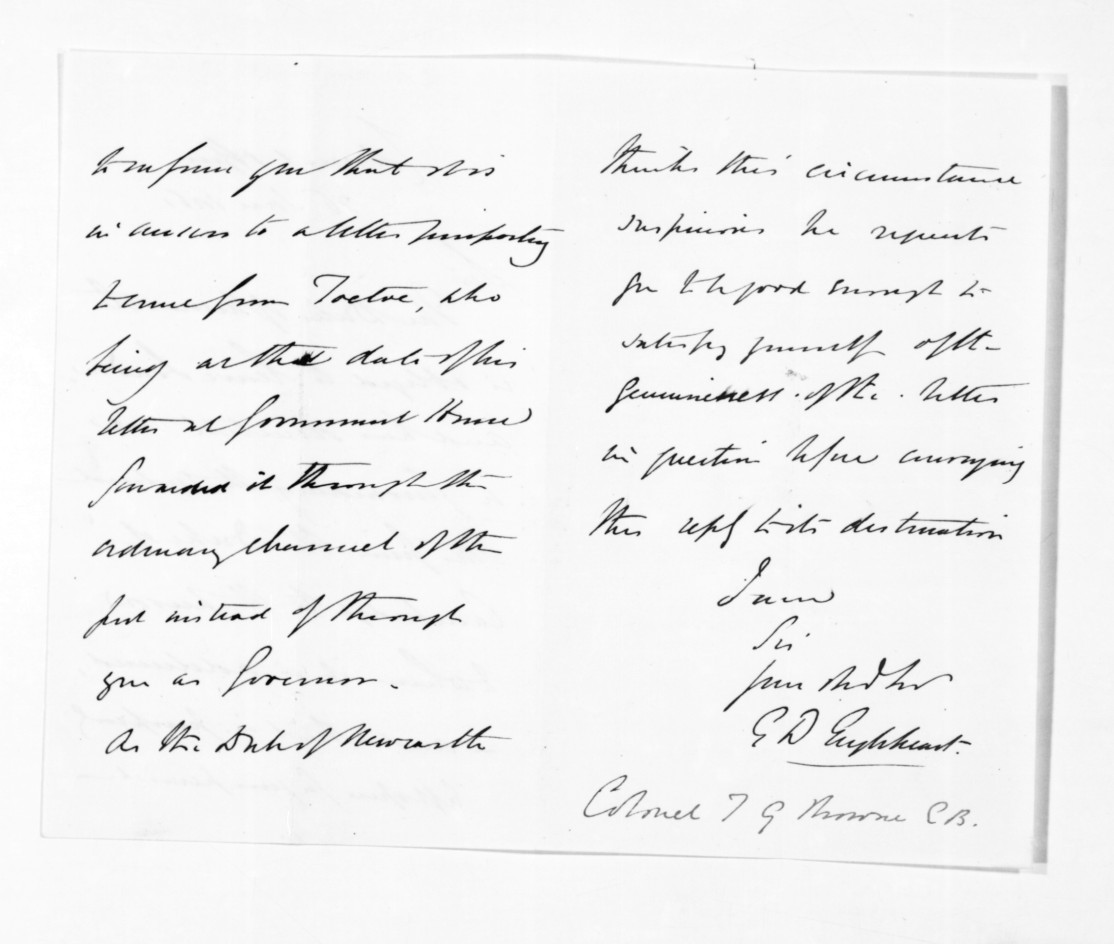 to inform you that it is
in answer to a letter purporting
to come from Taetoe, who
being at the date of his
letter at Government House
forwarded it through the
ordinary channel of the
post instead of through
you as Governor.
As the Duke of Newcastle
thinks this circumstance
suspicious he requests
you to be good enough to
satisfy yourself of the
genuineness of the letter
in question before conveying
this reply to its destination
I am
Sir
your obed Ser
G D Engleheart.
Colonel T G Browne C B.